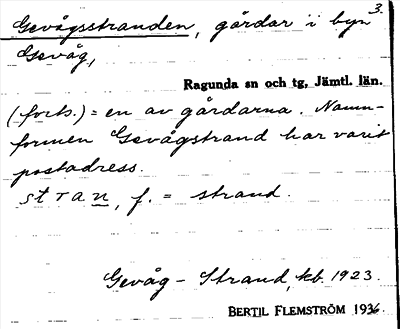 3.
Gevågsstranden, gårdar i byn
Gevåg,
Ragunda sn och tg, Jämtl. län.
(forts.) = en av gårdarna. Namn-
formen Gevågstrand har varit
postadress.
stran, f. = strand.
Gevåg – Strand, kb. 1923.
BERTIL FLEMSTRÖM 1936.